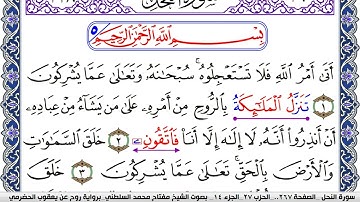 بِسْمِ اللَّهِ الرَّحْمَٰنِ الرَّحِيمِ
أَتَىٰ أَمْرُ اللَّهِ فَلَا تَسْتَعْجِلُوهُ سُبْحَانَهُ وَتَعَالَىٰ عَمَّا يُشْرِكُونَ
١ تَنَزَّلُ الْمَلَائِكَةُ بِالرُّوحِ مِنْ أَمْرِهِ عَلَىٰ مَنْ يَشَاءُ مِنْ عِبَادِهِ
أَنْ أَنْذِرُوا أَنَّهُ لَا إِلَٰهَ إِلَّا أَنَا فَاتَّقُونِ ٢ خَلَقَ السَّمَاوَاتِ
وَالْأَرْضَ بِالْحَقِّ تَعَالَىٰ عَمَّا يُشْرِكُونَ ٣ خَلَقَ
سورة النحل - الصفحة ٢٦٧ - الحزب ٢٧ - الجزء ١٤ - بصوت الشيخ مفتاح محمد السلطني برواية روح عن يعقوب الحضرمي